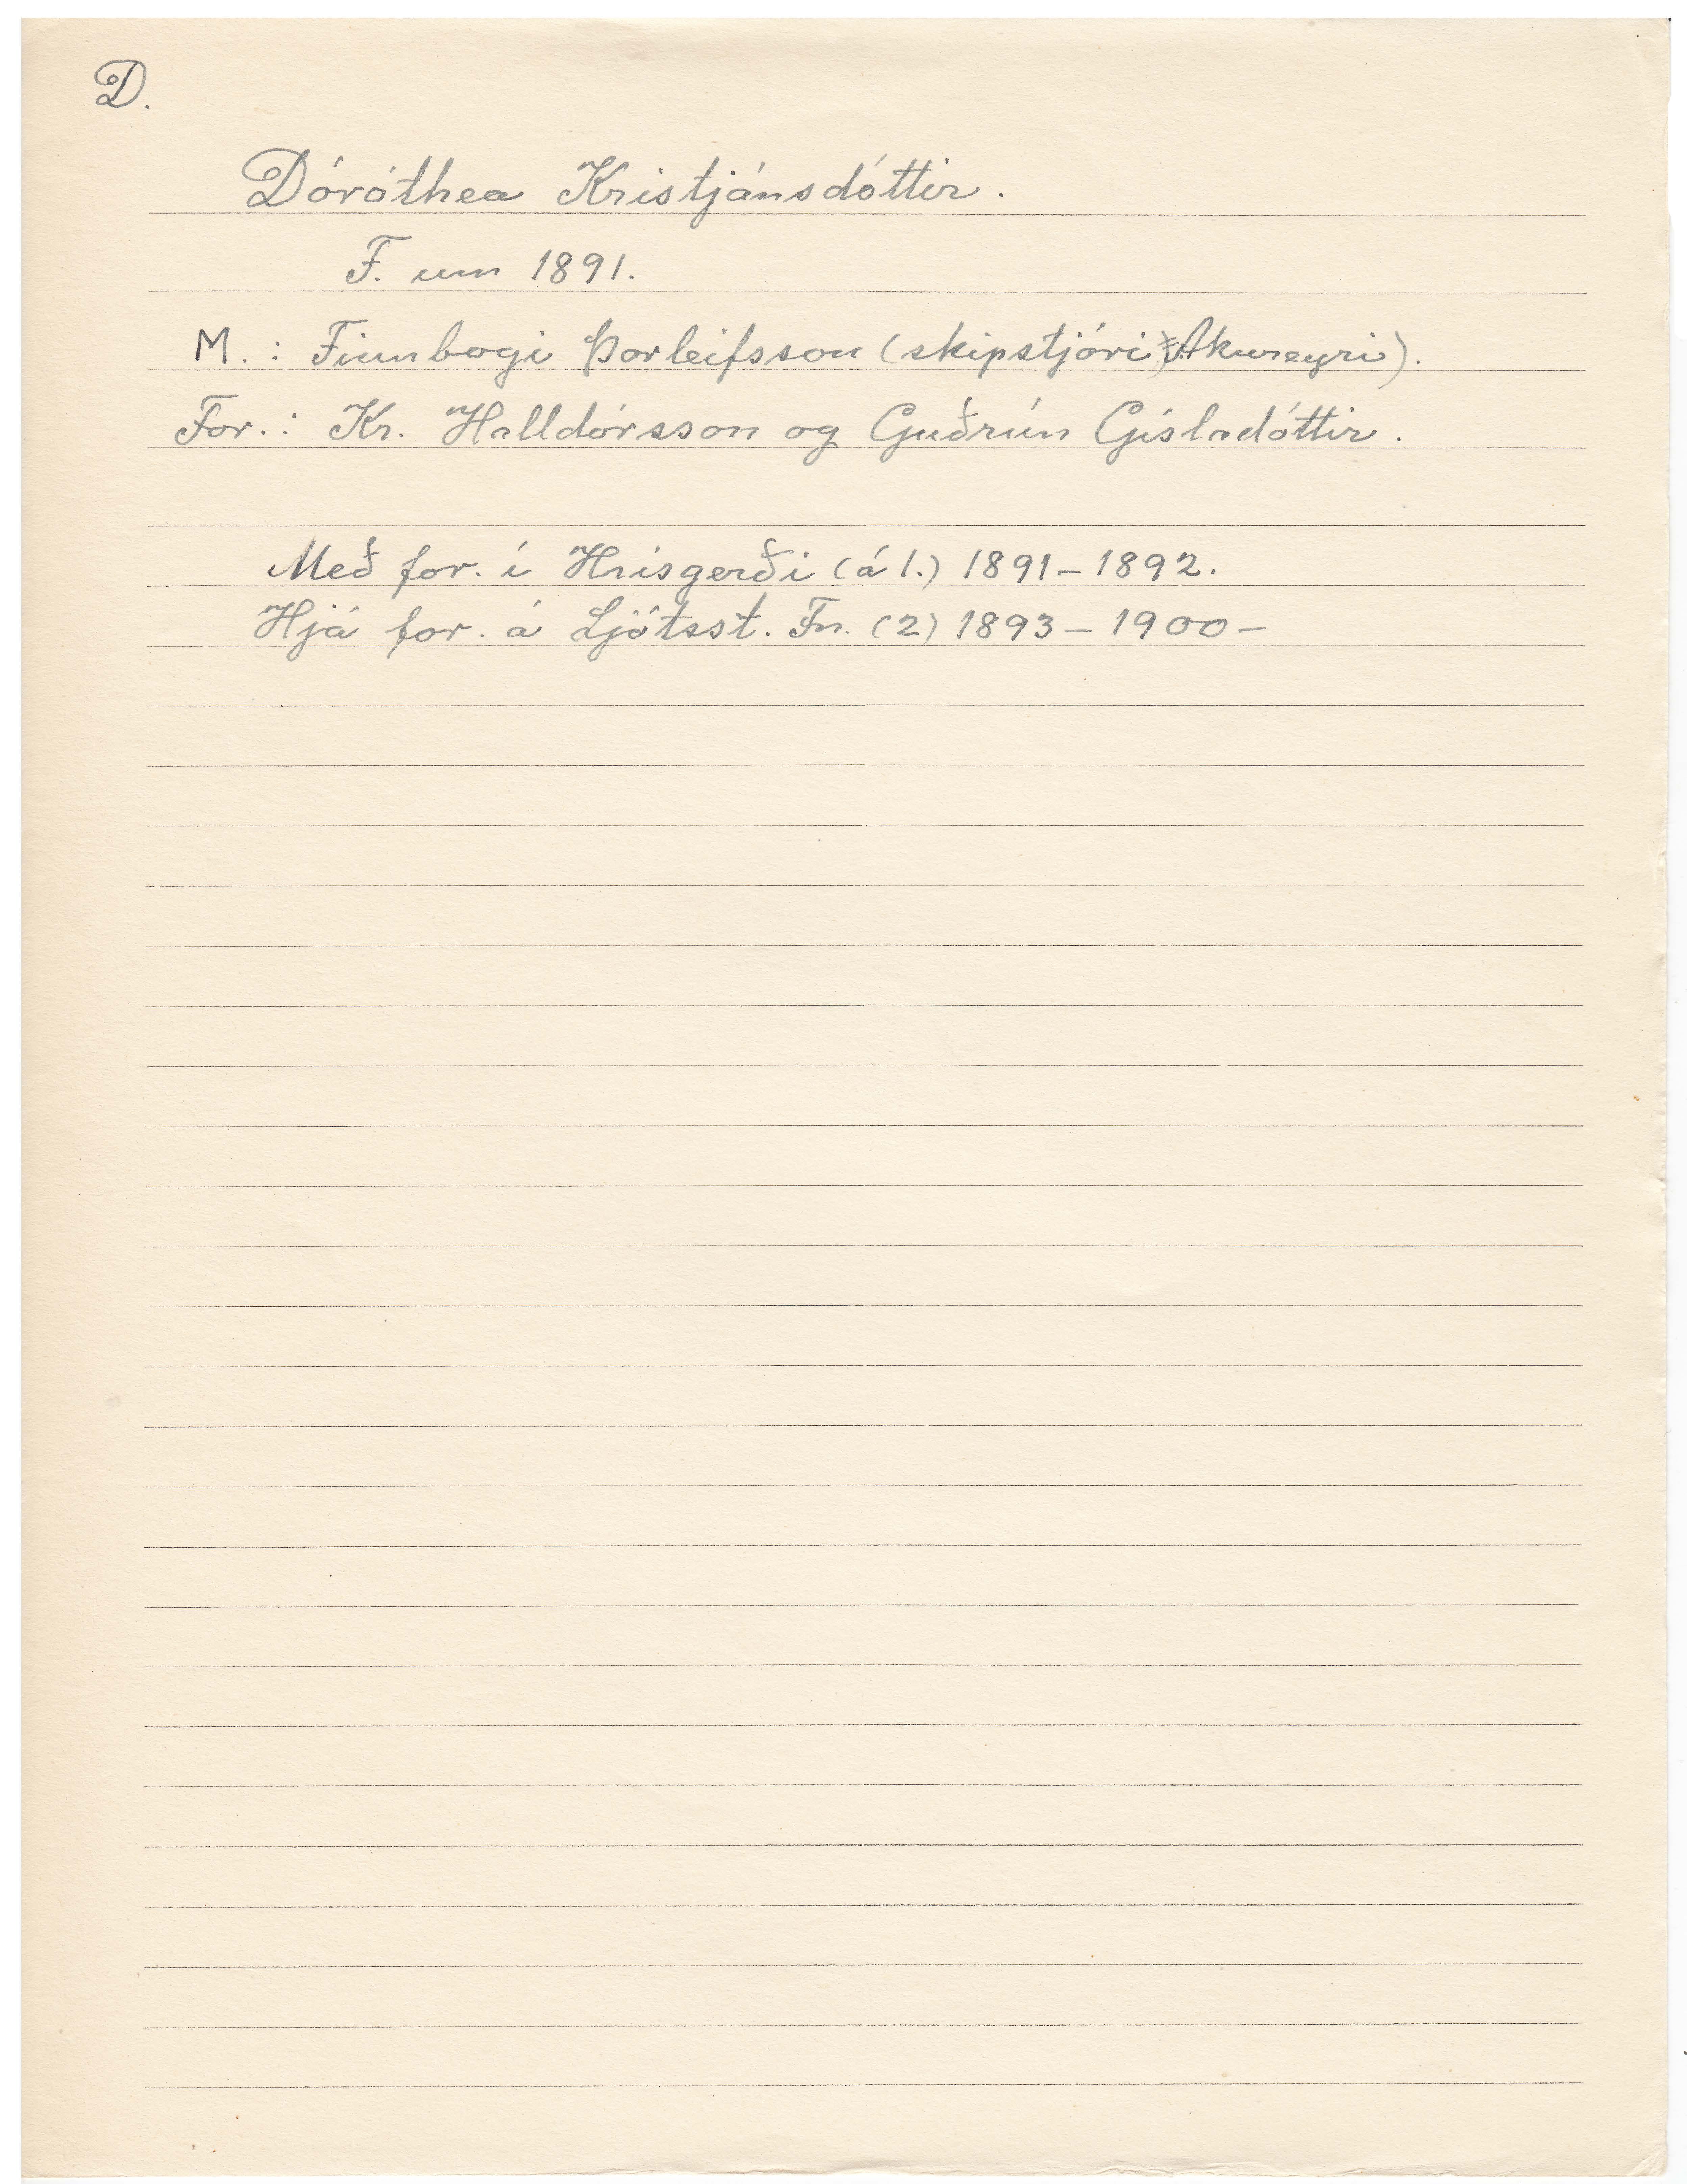 D.
Dóróthea Kristjánsdóttir.
F. um 1891.
M.: Finnbogi Þorleifsson (skipstjóri Akureyri).
For.: Kr. Halldórsson og Guðrún Gísladóttir.
Með for. í Hrísgerði (á 1.) 1891-1892.
Hjá for. á Ljótsst. Fn. (2) 1893-1900-